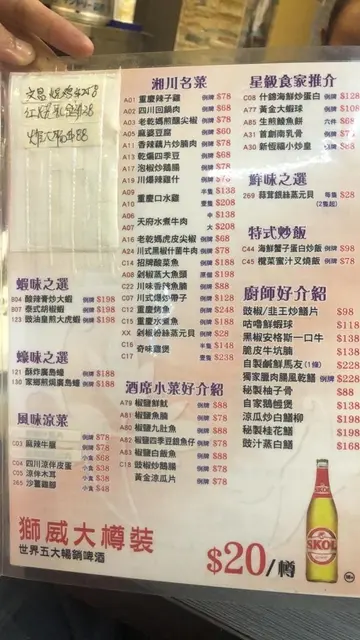 湘川名菜
A01 重慶辣子雞 例牌 $78
A02 四川回鍋肉 例牌 $68
A03 老乾媽煎釀尖椒 例牌 $78
A05 麻婆豆腐 例牌 $60
A11 香辣藕片炒腩肉 例牌 $78
A13 乾煸四季豆 例牌 $68
A17 泡椒炒鵝腸 例牌 $78
A19 川爆辣雞什 例牌 $76
A09 重慶口水雞 半隻 $138
A10 例牌 $208
A06 天府水煮牛肉 中 $138
A07 大 $208
A16 老乾媽虎皮尖椒 例牌 $68
C14 招牌酸菜魚 例牌 $188
A08 剁椒蒸大魚頭 $198
C22 川味香辣鮑魚 例牌
C07 川式爆炒帶子 例牌 $128
C12 重慶烤魚 例牌 $248
C15 重慶水煮魚 例牌 $188
XX 剁椒粉絲蒸元貝 $28
C16 奇味雞煲 半隻 $148
C17 壹隻 $238
星級食家推介
C08 什錦海鮮炒蛋白 例牌 $128
A77 黃金大蝦球 例牌 $108
A85 生煎鯪魚餅 六件 $68
A31 首創南乳骨 例牌
A30 新恆福小炒皇 例牌 $88
鮮味之選
269 蒜茸銀絲蒸元貝 每隻 $28
(2隻起)
特式炒飯
C44 海鮮蟹子蛋白炒飯 例牌 $98
C45 欖菜蜜汁叉燒飯 例牌 $78
廚師好介紹
豉椒/韭王炒鱔片 $98
咕嚕鮮蝦球 $118
黑椒安格斯一口牛 $138
脆皮牛坑腩 $138
自製鹹鮮馬友(1條) $228
獨家臘肉腸風乾鱔 $228
秘製柚子骨 $88
自家鵝髀煲 $138
涼瓜炒白鱔柳 $198
秘製桂花鱔 $198
豉汁蒸白鱔 $168
蝦味之選
B04 酸辣膏炒大蝦 例牌 $198
B07 泰式胡椒蝦 例牌 $198
123 豉油皇煎大虎蝦 例牌 $198
蠔味之選
121 酥炸廣島蠔 $188
130 家鄉煎焗廣島蠔 例牌 $188
風味涼菜
C03 麻辣牛𦟌 例牌 $78
C04 四川涼伴皮蛋 小食 $38
C05 涼伴木耳 小食 $38
J65 沙薑雞腳 小食 $48
酒席小菜好介紹
A79 椒鹽鮮魷 例牌 $88
A81 椒鹽魚腩 例牌 $78
A80 椒鹽九肚魚 例牌 $88
A82 椒鹽四季豆銀魚仔 例牌 $78
A83 椒鹽白飯魚 例牌 $88
C18 豉椒炒鵝腸 例牌 $78
黃金涼瓜片 例牌 $78
獅威大樽裝
世界五大暢銷啤酒
$20/樽
SKOL